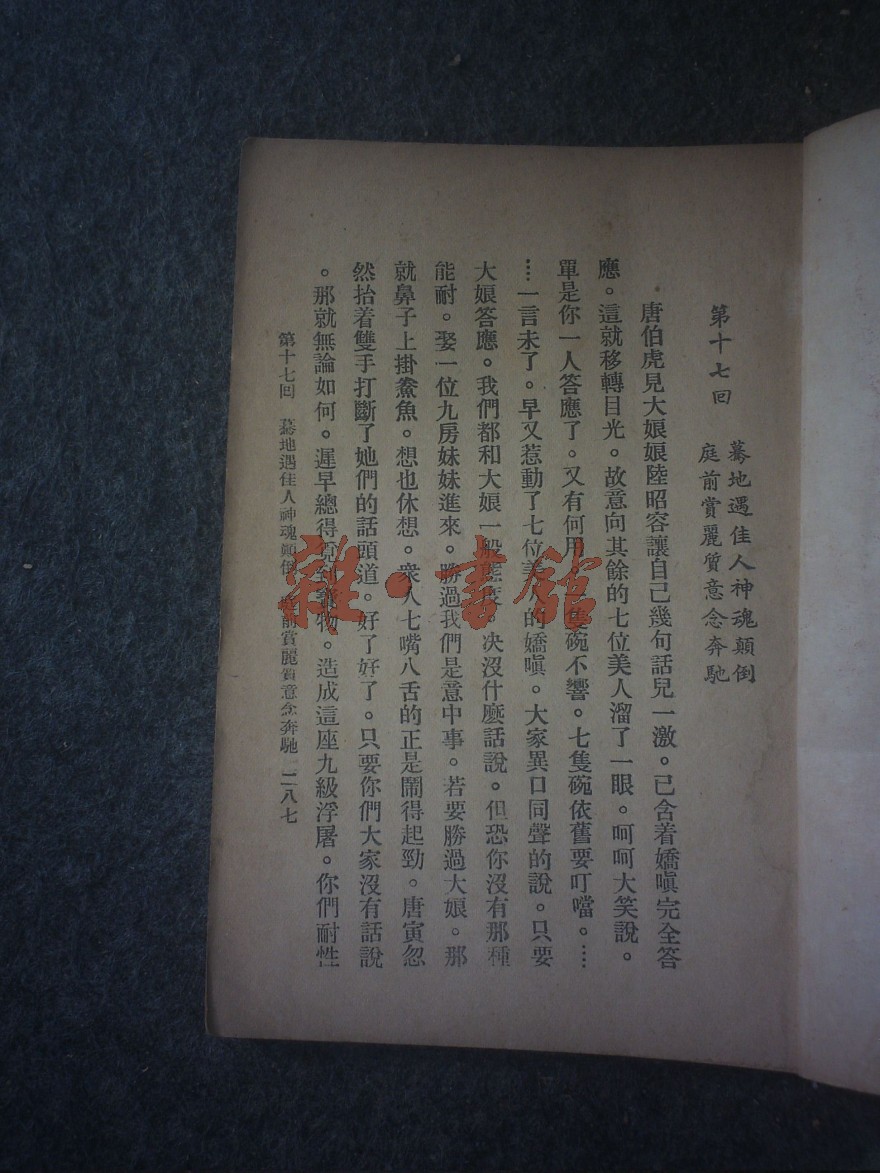 第十七回
驀地遇佳人神魂顛倒
庭前賞麗質意念奔馳
唐伯虎見大娘娘陸昭容讓自己幾句話兒一激。已含着嬌嗔完全答
應。這就移轉目光。故意向其餘的七位美人溜了一眼。呵呵大笑說。
單是你一人答應了。又有何用。一隻碗不響。七隻碗依舊要叮噹。……
…一言未了。早又惹動了七位美人的嬌嗔。大家異口同聲的說。只要
大娘答應。我們都和大娘一般態度。决沒什麽話說。但恐你沒有那種
能耐。娶一位九房妹妹進來。勝過我們是意中事。若要勝過大娘。那
就鼻子上掛鯗魚。想也休想。衆人七嘴八舌的正是鬧得起勁。唐寅忽
然抬着雙手打斷了她們的話頭道。好了好了。只要你們大家沒有話說
。那就無論如何。遲早總得覓到寶物。造成這座九級浮屠。你們耐性
第十七回 驀地遇佳人神魂顛倒 庭前賞麗質意念奔馳 二八七
雜·書館